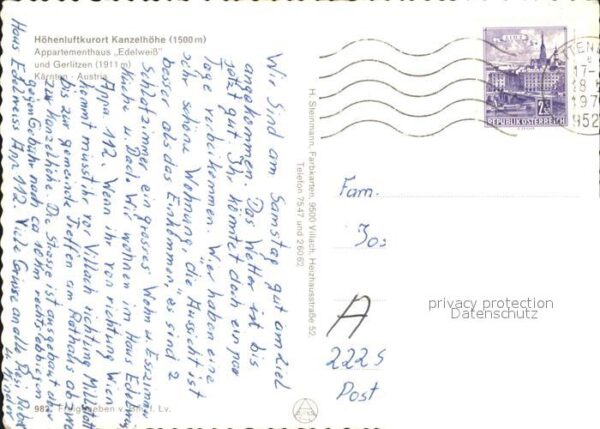 Höhenluftkurort Kanzelhöhe (1500 m)
Appartementhaus „Edelweiß"
und Gerlitzen (1911 m)
Kärnten · Austria
Wir sind am Samstag gut am Ziel
angekommen. Das Wetter ist bis
jetzt gut. Ihr könntet doch ein paar
Tage vorbeikommen. Wir haben eine
sehr schöne Wohnung, die Aussicht ist
besser als das Einkommen, es sind 2
Schlafzimmer ein grosses Wohn u. Esszimmer
Küche u. Bad. Wir wohnen im Haus Edelweiss
Appa 112. Wenn ihr von richtung Wien
kommt müsst ihr vor Villach richtung Millstatt
bis zur gemeinde Treffen am Rathaus abbiegen
zur Kanzelhöhe. Die Strasse ist ausgebaut aber
gegen Gebühr nach ca 10 km rechts abbiegen
Haus Edelweiss App 112. Viele Grüsse an alle Resi
H. Steinmann, Farbkarten, 9500 Villach, Heizhausstraße 52,
Telefon 7547 und 26062
LINZ
2.50
REPUBLIK ÖSTERREICH
17-
28
197
952
Fam.
Jos
A
2225
Post
privacy protection
Datenschutz
982
Freigegeben v. Lv.